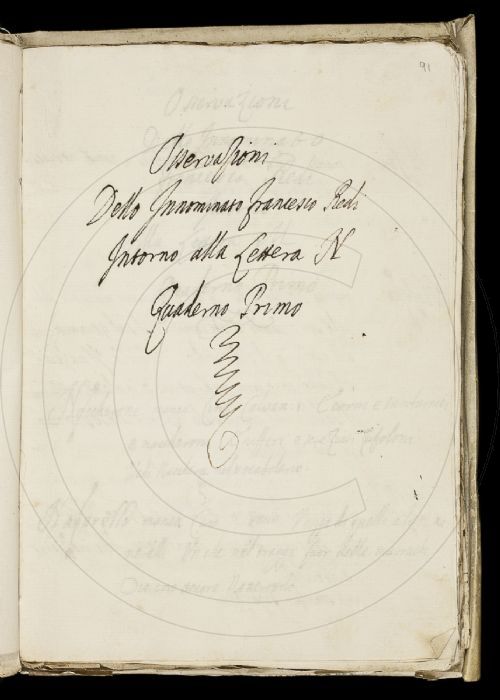 91
Osservazioni
Dello Innominato Francesco Redi
Intorno alla Lettera N
Quaderno Primo